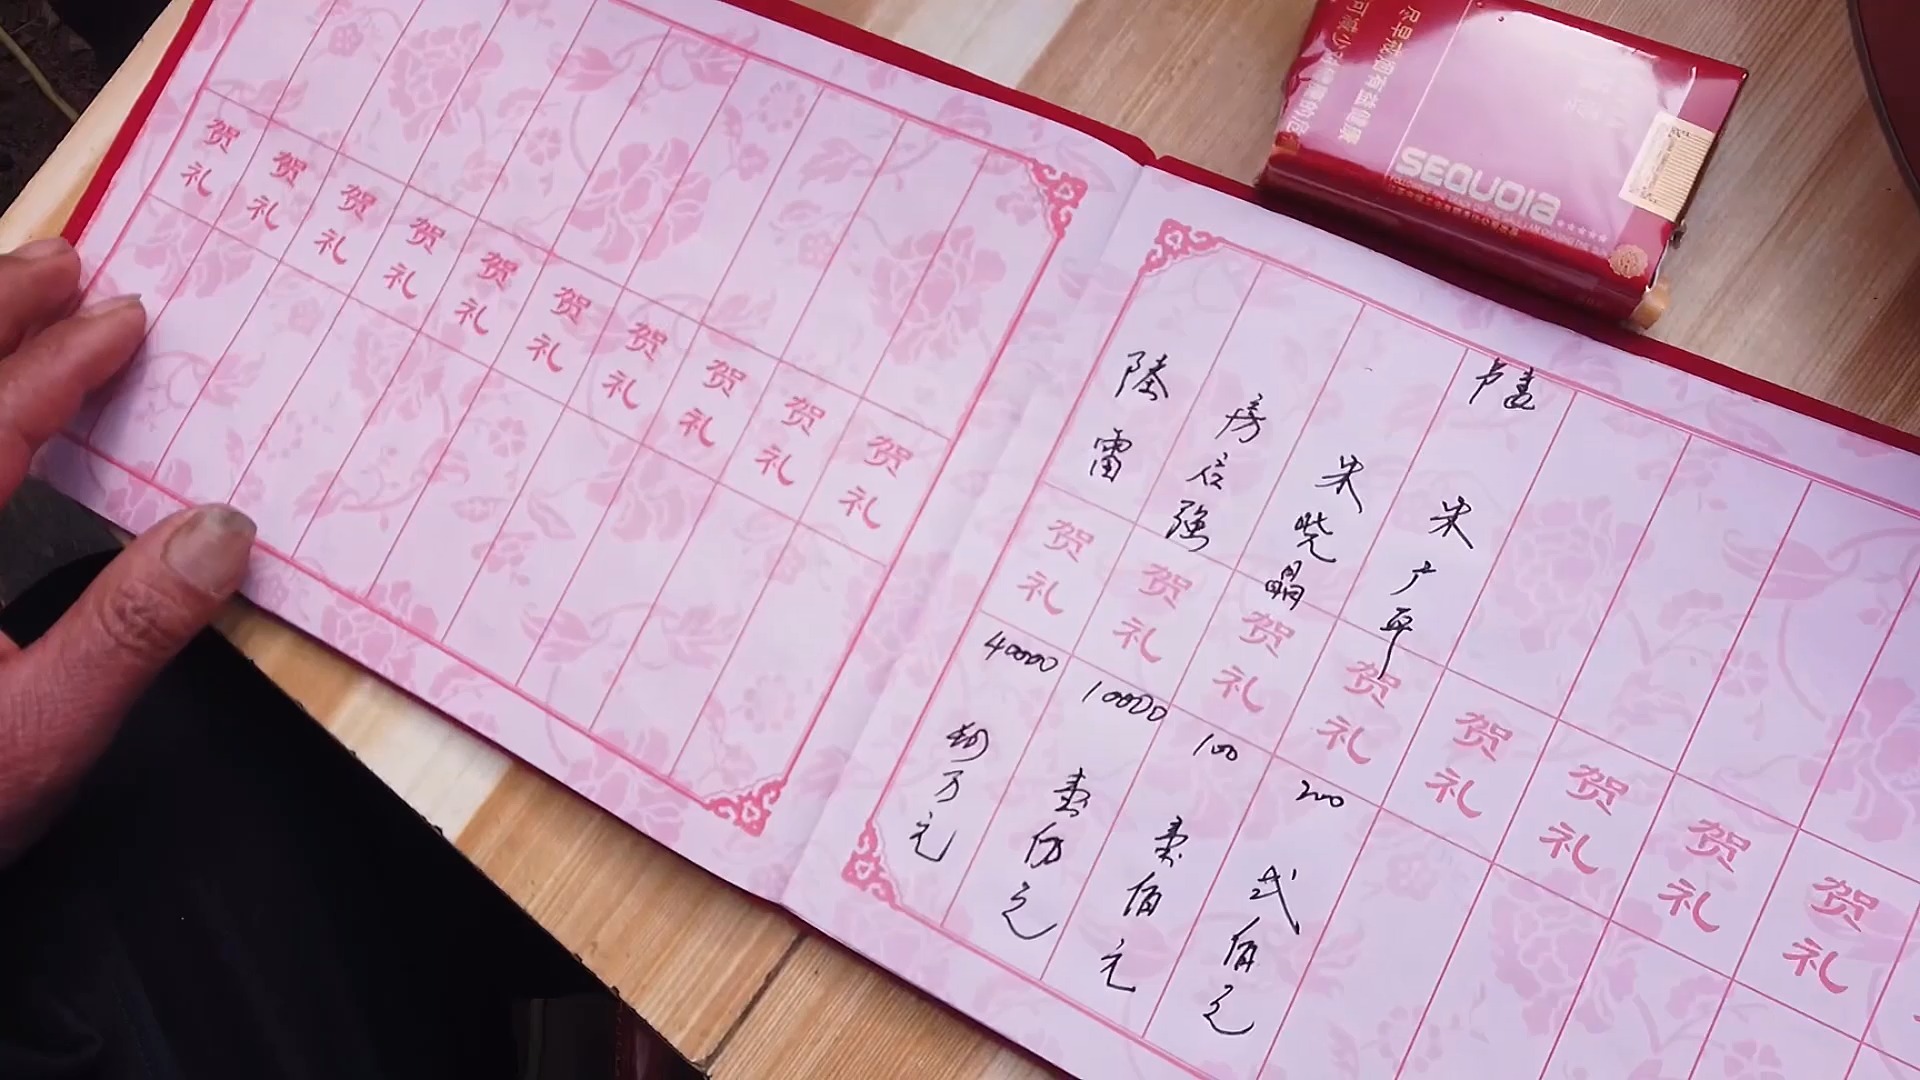 贺礼
贺礼
贺礼
贺礼
贺礼
贺礼
贺礼
贺礼
贺礼
贺礼
陆雷
贺礼
40000
肆万元
房启强
贺礼
10000
壹仟元
朱晓晶
贺礼
100
壹佰元
朱广平
贺礼
200
贰佰元
贺礼
贺礼
贺礼
贺礼
尽早戒烟有益健康
SEQUOIA